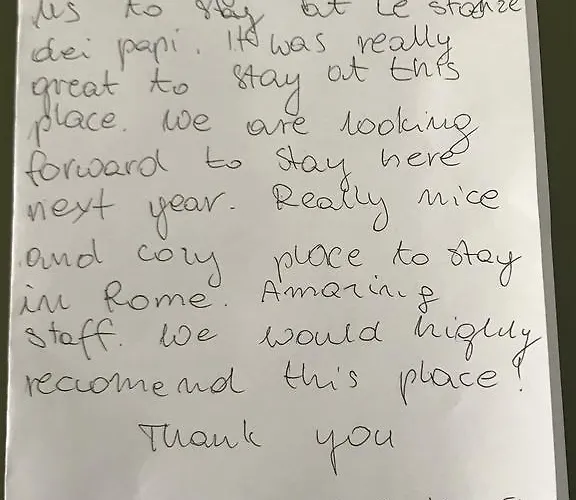 us to stay at Le stanze
dei papi. It was really
great to stay at this
place. We are looking
forward to stay here
next year. Really nice
and cozy place to stay
in Rome. Amazing
staff. We would highly
reccomend this place!
Thank you